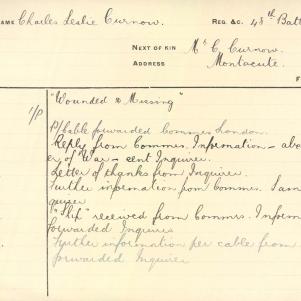 NAME Charles Leslie Curnow. REG. &C. 48th Batt
NEXT OF KIN Mr C. Curnow.
ADDRESS Montacute.
"Wounded & Missing"
P/Cable forwarded Commrs London.
Reply from Commrs. Information - abo
er of War - sent Inquirer.
Letter of thanks from Inquirer
Further information from Commrs. Sam
quirer
"Slip" received from Commrs. Inform
forwarded Inquirer
Further information per cable from
forwarded Inquirer